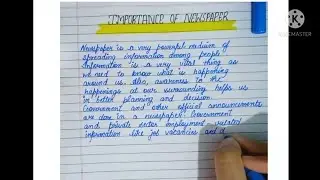 IMPORTANCE OF NEWSPAPER
Newspaper is a very powerful medium of
spreading information among people.
Information is a very vital thing as
we need to know what is happening
around us. Also, awareness to the
happenings at our surrounding helps us
in better planning and decision.
Government and other official announcements
are done in a newspaper. Government
and private sector employment-related
information like job vacancies and d
KINEMASTER